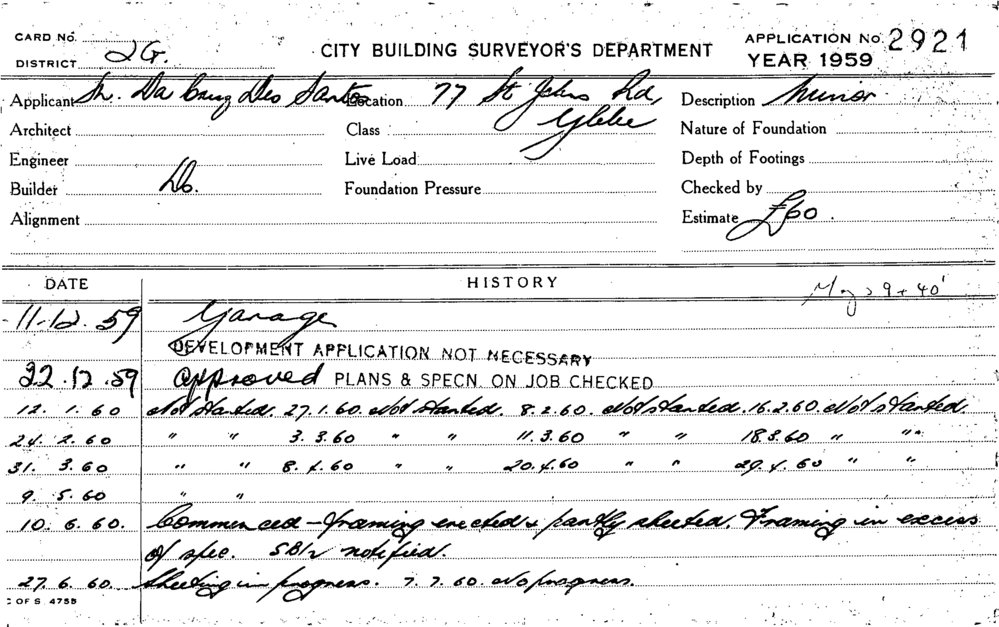 CARD No. CITY BUILDING SURVEYOR'S DEPARTMENT APPLICATION No. 2921
DISTRICT 2G. YEAR 1959
Applicant Da Cruz Dos Santos Location 77 St Johns Rd, Glebe Description Minor
Architect Class Nature of Foundation
Engineer Live Load Depth of Footings
Builder Do. Foundation Pressure Checked by
Alignment Estimate £60.
DATE HISTORY
9 + 40'
11-12.59 Garage
DEVELOPMENT APPLICATION NOT NECESSARY
22.12.59 Approved PLANS & SPECN. ON JOB CHECKED
12. 1. 60 Not Started. 27.1.60. Not Started. 8.2.60. Not Started. 16.2.60. Not Started.
24. 2. 60 " " 3. 3. 60 " " 11. 3. 60 " " 18.3.60 " "
31. 3. 60 " " 8. 4. 60 " " 20.4.60 " " 29. 4. 60 " "
9. 5. 60 " "
10. 6. 60. Commenced - framing erected & partly sheeted. Framing in excess
of spec. SBI2 notified.
27. 6. 60. Sheeting in progress. 7. 7. 60. No progress.
C OF S 4755